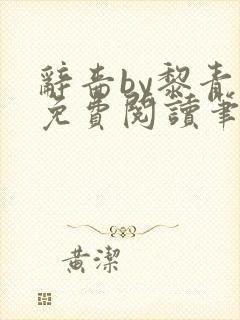 辭嗇by黎青
免費閱讀筆
黃潔